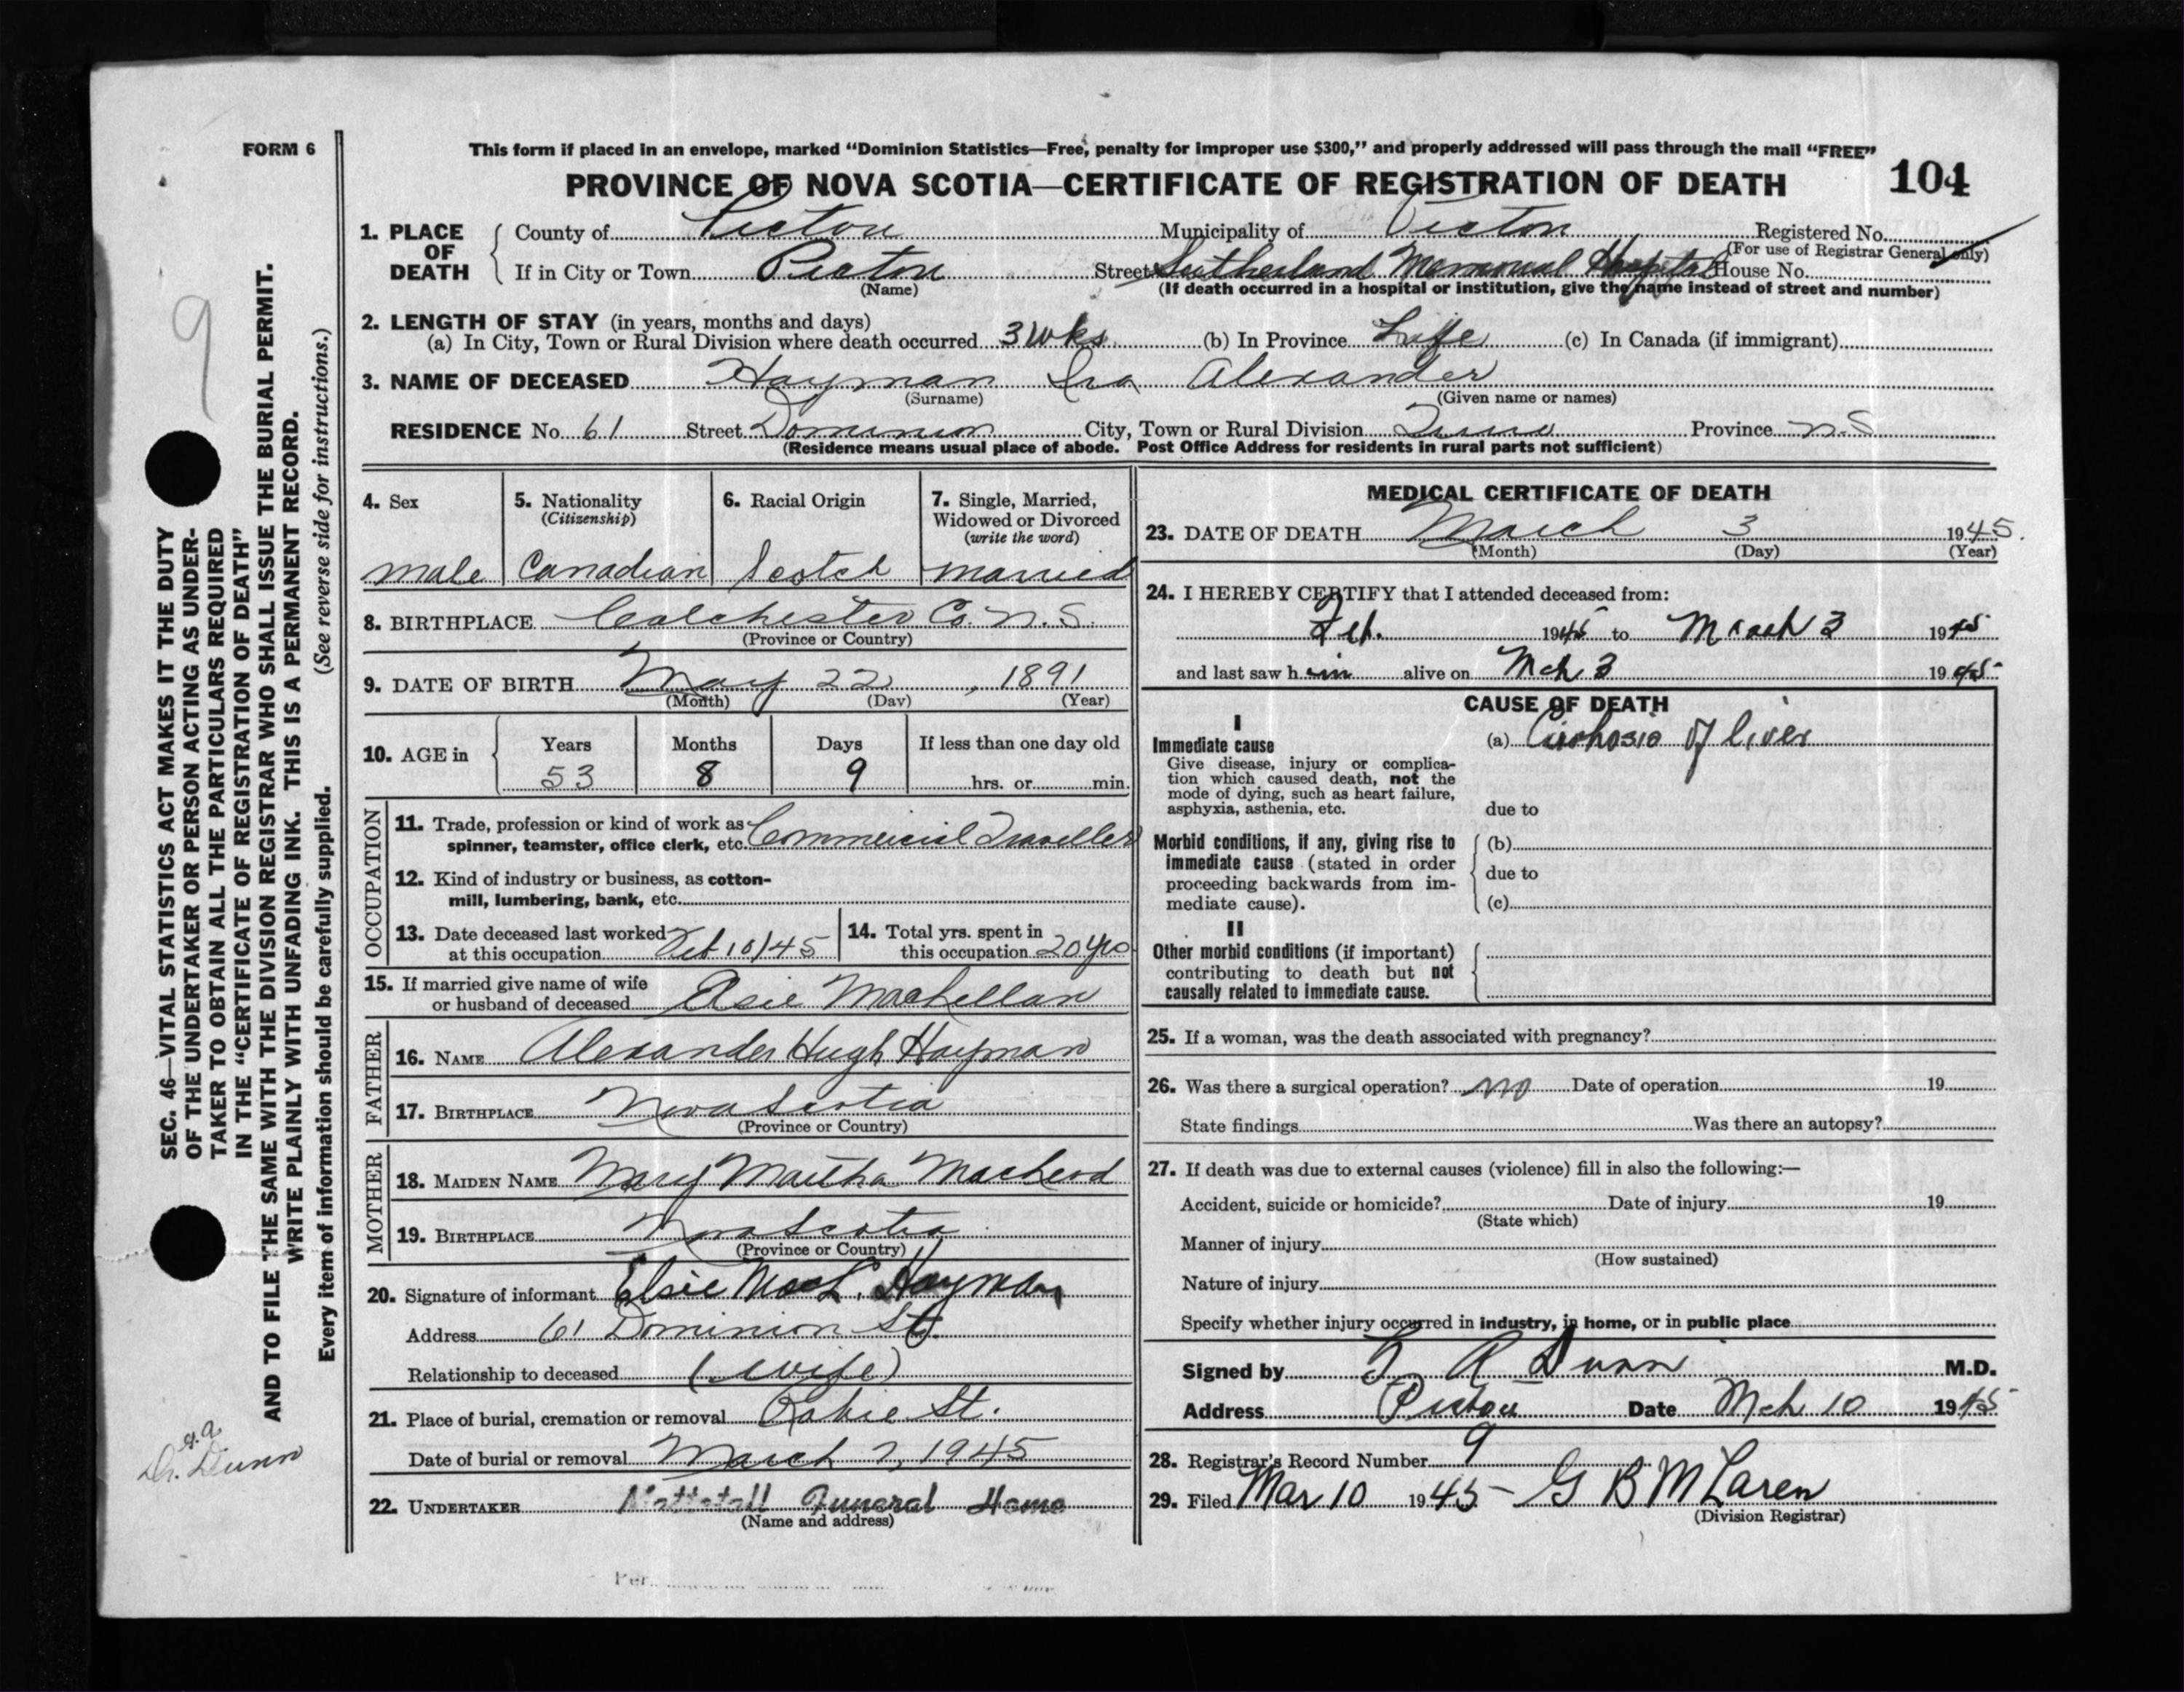 FORM 6
This form if placed in an envelope, marked “Dominion Statistics—Free, penalty for improper use $300,” and properly addressed will pass through the mail “FREE”
PROVINCE OF NOVA SCOTIA—CERTIFICATE OF REGISTRATION OF DEATH 104
1. PLACE OF DEATH
County of Pictou Municipality of Pictou Registered No.
(For use of Registrar General only)
If in City or Town Pictou Street Sutherland Memorial Hospital House No.
(Name) (If death occurred in a hospital or institution, give the name instead of street and number)
2. LENGTH OF STAY (in years, months and days)
(a) In City, Town or Rural Division where death occurred 3 wks. (b) In Province Life (c) In Canada (if immigrant)
3. NAME OF DECEASED Hayman Ira Alexander
(Surname) (Given name or names)
RESIDENCE No. 61 Street Dominion City, Town or Rural Division Truro Province N.S
(Residence means usual place of abode. Post Office Address for residents in rural parts not sufficient)
4. Sex
male
5. Nationality
(Citizenship)
Canadian
6. Racial Origin
Scotch
7. Single, Married,
Widowed or Divorced
(write the word)
married
8. BIRTHPLACE Colchester Co. N.S.
(Province or Country)
9. DATE OF BIRTH May 22, 1891
(Month) (Day) (Year)
10. AGE in
Years Months Days If less than one day old
53 8 9 hrs. or min.
OCCUPATION
11. Trade, profession or kind of work as
spinner, teamster, office clerk, etc. Commercial Traveller
12. Kind of industry or business, as cotton-
mill, lumbering, bank, etc.
13. Date deceased last worked
at this occupation Feb 10/45
14. Total yrs. spent in
this occupation 20 yrs
15. If married give name of wife
or husband of deceased Elsie MacLellan
FATHER
16. NAME Alexander Hugh Hayman
17. BIRTHPLACE Nova Scotia
(Province or Country)
MOTHER
18. MAIDEN NAME Mary Martha MacLeod
19. BIRTHPLACE Nova Scotia
(Province or Country)
20. Signature of informant Elsie MacL. Hayman
Address 61 Dominion St.
Relationship to deceased (wife)
21. Place of burial, cremation or removal Robie St.
Date of burial or removal March 7, 1945
22. UNDERTAKER Mattatall Funeral Home
(Name and address)
Per
MEDICAL CERTIFICATE OF DEATH
23. DATE OF DEATH March 3 1945.
(Month) (Day) (Year)
24. I HEREBY CERTIFY that I attended deceased from:
Feb. 1945 to March 3 1945
and last saw him alive on Mch 3 1945
CAUSE OF DEATH
I
Immediate cause
Give disease, injury or complica-
tion which caused death, not the
mode of dying, such as heart failure,
asphyxia, asthenia, etc.
(a) Cirrhosis of liver
due to
Morbid conditions, if any, giving rise to
immediate cause (stated in order
proceeding backwards from im-
mediate cause).
(b)
due to
(c)
II
Other morbid conditions (if important)
contributing to death but not
causally related to immediate cause.
25. If a woman, was the death associated with pregnancy?
26. Was there a surgical operation? no Date of operation 19
State findings Was there an autopsy?
27. If death was due to external causes (violence) fill in also the following:—
Accident, suicide or homicide? Date of injury 19
(State which)
Manner of injury
(How sustained)
Nature of injury
Specify whether injury occurred in industry, in home, or in public place
Signed by R Dunn M.D.
Address Pictou Date Mch 10 1945
28. Registrar's Record Number 9
29. Filed Mar 10 1945 - G B McLaren
(Division Registrar)
SEC. 46—VITAL STATISTICS ACT MAKES IT THE DUTY
OF THE UNDERTAKER OR PERSON ACTING AS UNDER-
TAKER TO OBTAIN ALL THE PARTICULARS REQUIRED
IN THE “CERTIFICATE OF REGISTRATION OF DEATH”
AND TO FILE THE SAME WITH THE DIVISION REGISTRAR WHO SHALL ISSUE THE BURIAL PERMIT.
WRITE PLAINLY WITH UNFADING INK. THIS IS A PERMANENT RECORD.
Every item of information should be carefully supplied. (See reverse side for instructions.)
9
Dr. Dunn